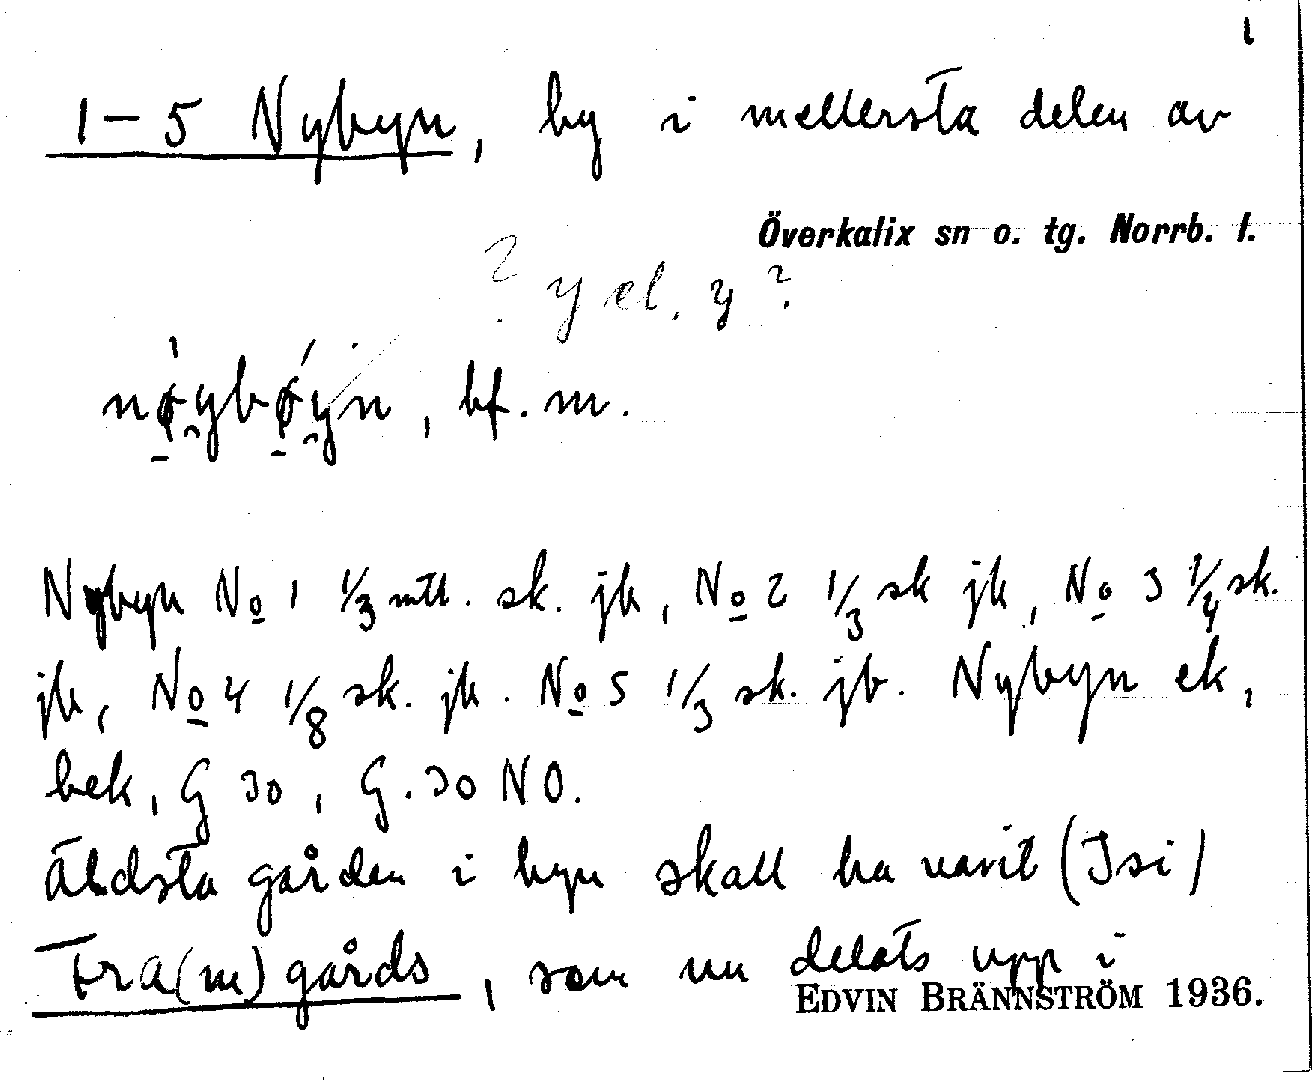 1
1–5 Nybyn, by i mellersta delen av
Överkalix sn o. tg. Norrb. l.
? y el. y ?
nøybøyn, bf. m.
Nybyn No 1 1/3 mtl. sk. jb, No 2 1/3 sk jb, No 3 1/4 sk.
jb, No 4 1/8 sk. jb. No 5 1/3 sk. jb. Nybyn ek,
bek, G 30, G. 30 NO.
Äldsta gården i byn skall ha varit (Isi)
Fra(m)gårds, som nu delats upp i
EDVIN BRÄNNSTRÖM 1936.